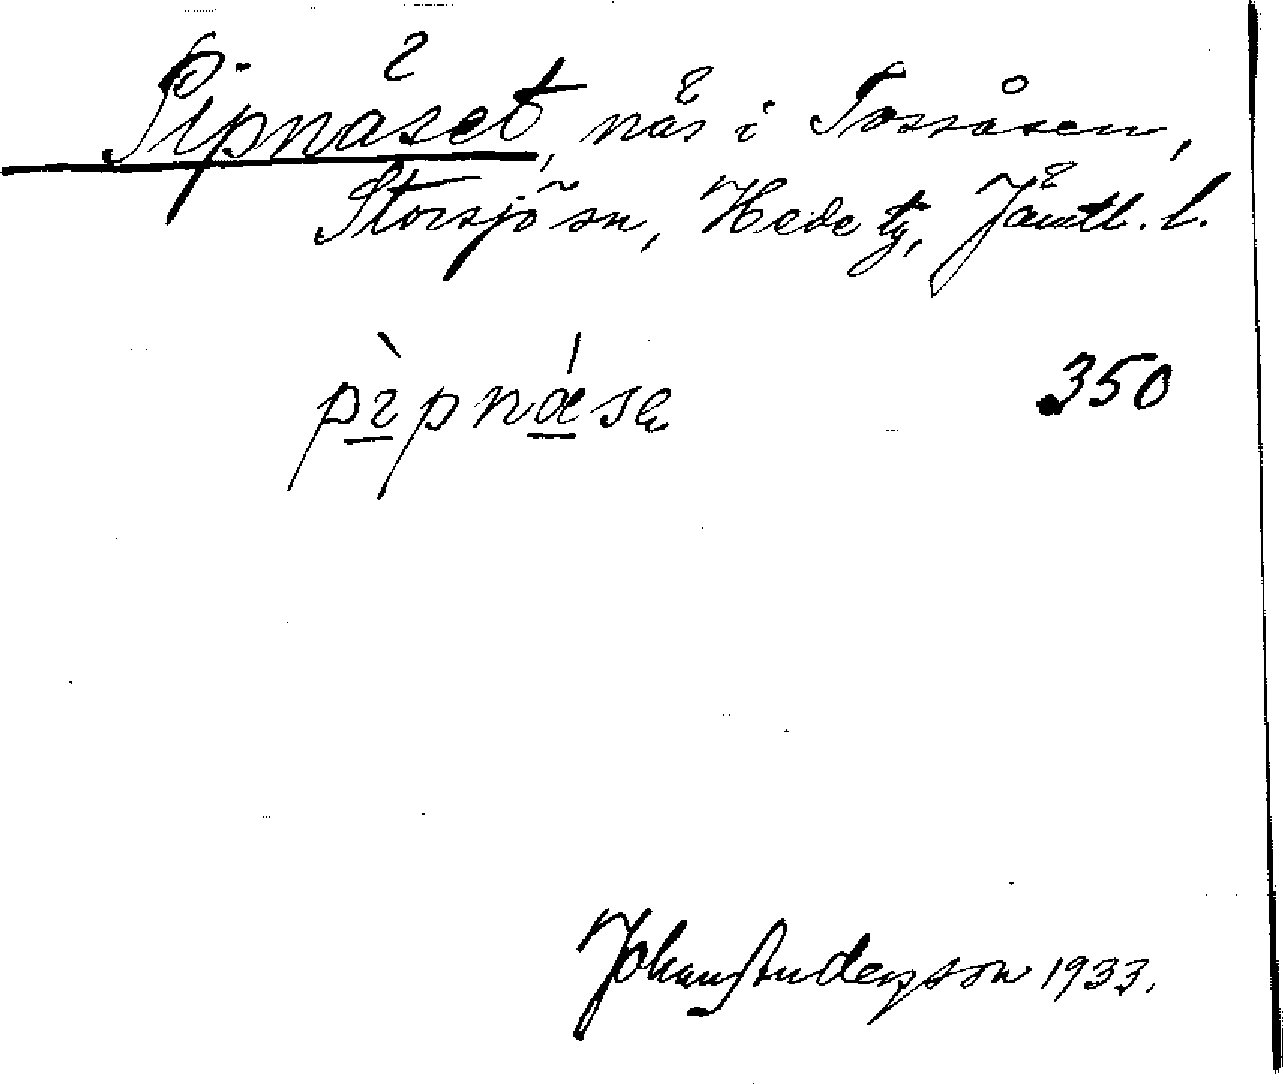 Pipnäset, näs i Tossåsen,
Storsjö sn, Hede tg, Jämtl. l.
pìpnásę 350
Johan Andersson 1933.